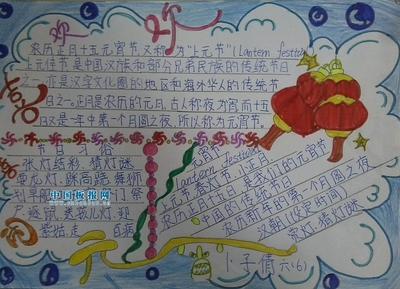 欢
农历正月十五元宵节又称为"上元节"(Lantern festival)
上元佳节是中国汉族和部分兄弟民族的传统节日
之一亦是汉字文化圈的地区和海外华人的传统节
日之一。正月是农历的元月,古人称夜为宵而十五
日又是一年中第一个月圆之夜,所以称为元宵节。
节日习俗
张灯结彩 猜灯谜
耍龙灯 踩高跷 舞狮
划旱船
祭
户 逐鼠 送孩儿灯 迎
紫姑 走百病
元宵节
Lantern festival
元夕 春灯节 小正月
农历正月十五是我们的元宵节
中国的传统节日
农历新年的第一个月圆之夜
汉朝(设定时间)
赏灯.猜灯谜
中国板报网
卜子倩 六(6)
元